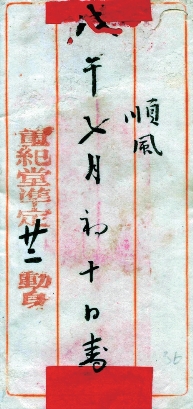 順風
戊午七月初十日壽
萬紀堂準定廿二動身
36